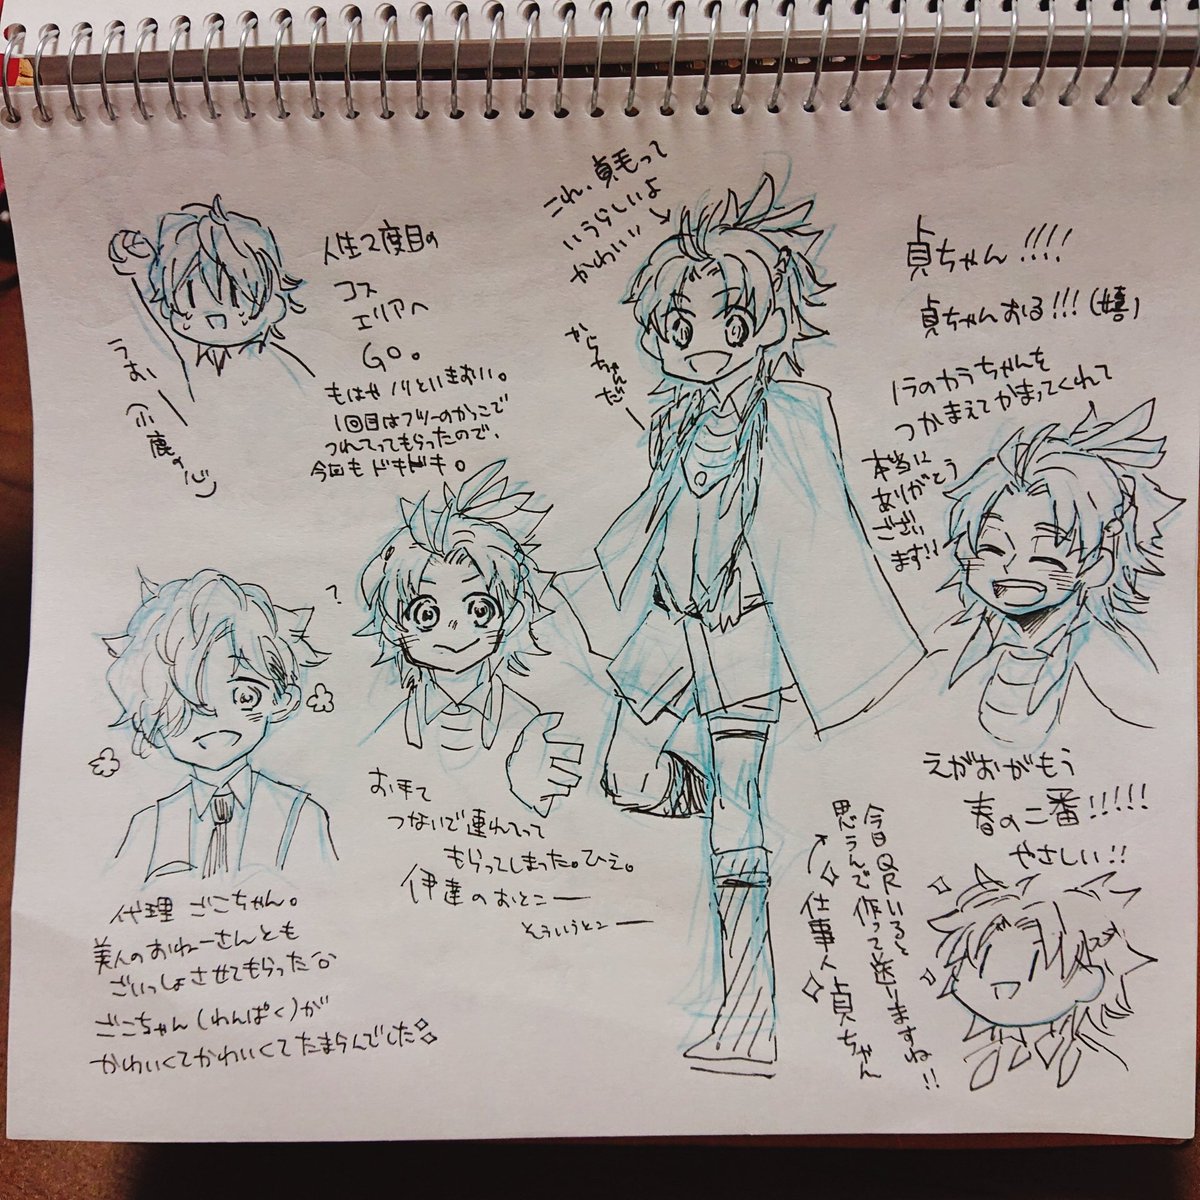 人生2度目の
コス
エリアへ
GO。
もはやノリといきおい。
1回目はフツーのかっこで
つれてってもらったので、
今回もドキドキ。
うおー
(小鹿の心)
これ、貞毛って
いうらしいよ
かわいい
からちゃんだー
貞ちゃん!!!!
貞ちゃんおる!!!(嬉)
ノラのカラちゃんを
つかまえてかまってくれて
本当に
ありがとう
ござい
ます!!
?
お手て
つないで連れてって
もらってしまった。ひえ。
伊達のおとこー
そういうとこー
代理 ごこちゃん。
美人のおねーさんとも
ごいっしょさせてもらった
ごこちゃん(わんぱく)が
かわいくてかわいくてたまらんでした
えがおがもう
春の二番!!!!!
やさしい!!
今日QRいると
思うんで作って送りますね!!
仕事人 貞ちゃん